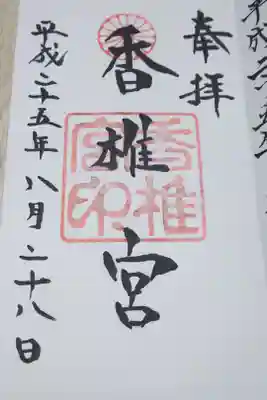 奉拝
香椎宮
香椎宮印
平成二十五年八月二十八日